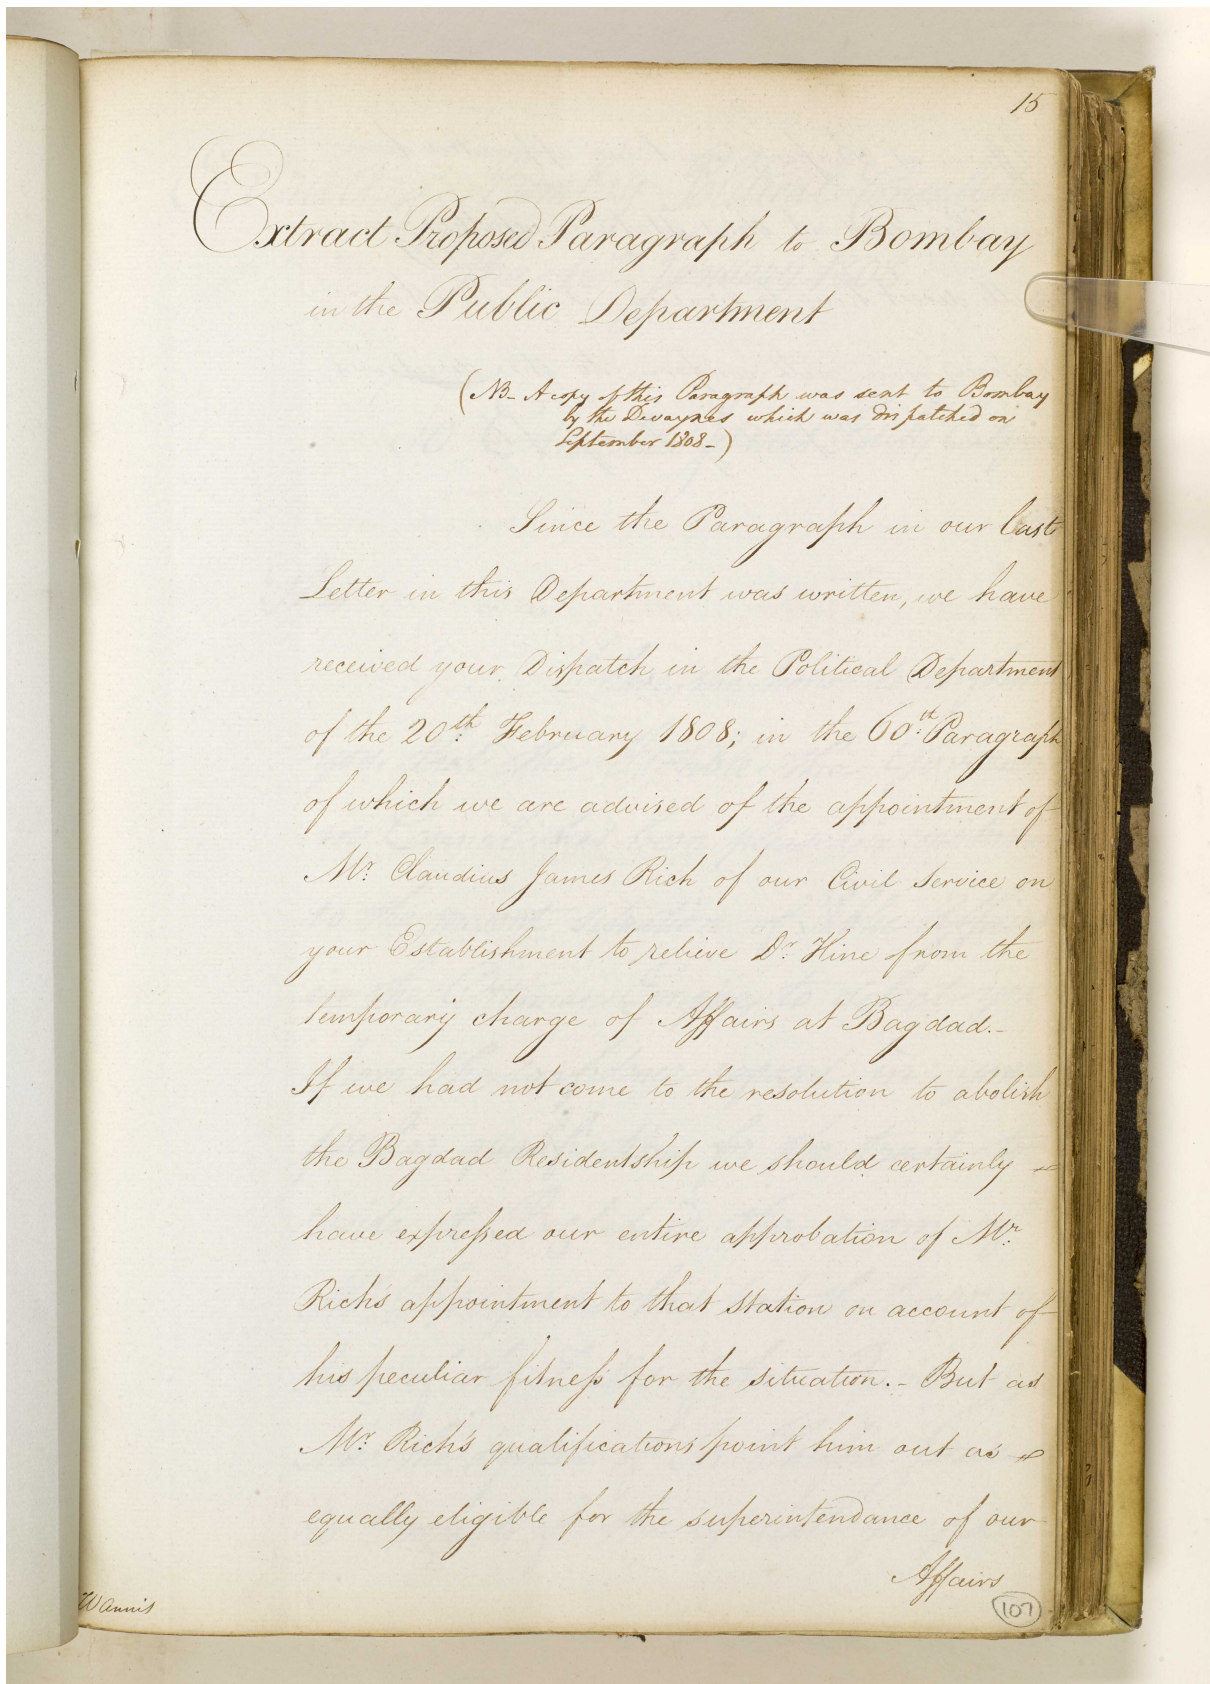 15
Extract Proposed Paragraph to Bombay
in the Public Department
(NB- A copy of this Paragraph was sent to Bombay
by the Devaynes which was dispatched on
September 1808-)
Since the Paragraph in our last
Letter in this Department was written, we have
received your Dispatch in the Political Department
of the 20th February 1808; in the 60th Paragraph
of which we are advised of the appointment of
Mr. Claudius James Rich of our Civil Service on
your Establishment to relieve Dr. Hine from the
temporary charge of Affairs at Bagdad.-
If we had not come to the resolution to abolish
the Bagdad Residentship we should certainly
have expressed our entire approbation of Mr.
Rich's appointment to that station on account of
his peculiar fitness for the situation.- But as
Mr. Rich's qualifications point him out as
equally eligible for the superintendance of our
Affairs
W Annis
107